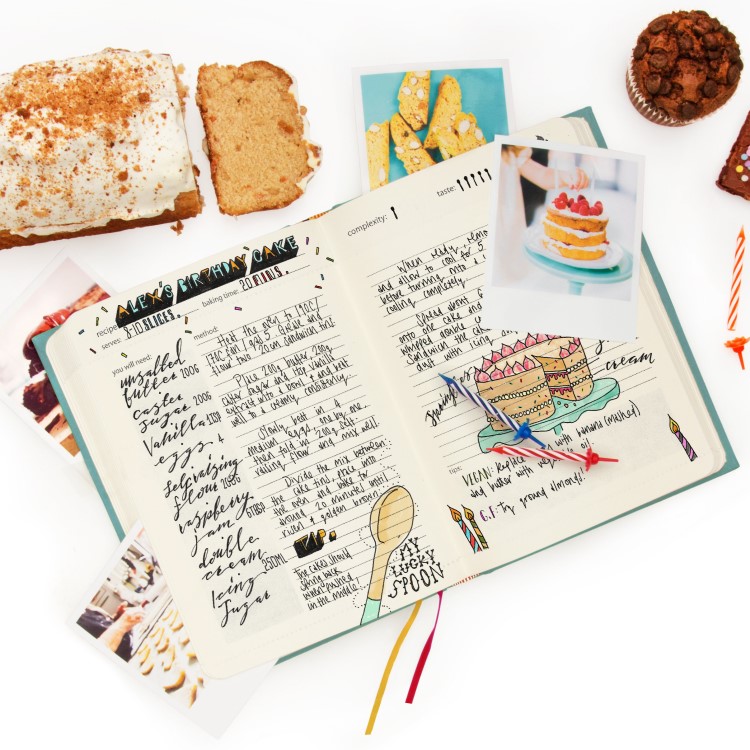 recipe: ALEX'S BIRTHDAY CAKE
serves: 8-10 SLICES.
baking time: 20 MINS.
you will need:
unsalted
butter 200G
caster
sugar 200G
Vanilla 1tsp
eggs 4
selfraising
flour 200G
raspberry
jam 6TBSP
double
cream 250ml
Icing
Sugar
method:
Heat the oven to 190C/
170C fan/gas 5. Grease and
flour two 20cm sandwich tins
Place 200g butter, 200g
caster sugar and 1tsp vanilla
extract into a bowl & and beat
well to a creamy consistency
Slowly beat in 4
medium eggs, one by one
then fold in 200g self
raising flour and mix well.
Divide the mix between
the cake tins, place into
the oven and bake for
around 20 minutes until
risen & golden brown.
TIP:
The cakes should
spring back
when pushed
in the middle!
MY
LUCKY
SPOON
complexity:
taste:
When ready, remo
and allow to cool for 5
before turning onto a
cooling completely.
Spread about 6
onto one cake and
whipped double
Sandwich the
dust with icing
cream
tips:
VEGAN: Replace with banana (mashed)
and butter with vegetable oil
G.F: Try ground almonds!